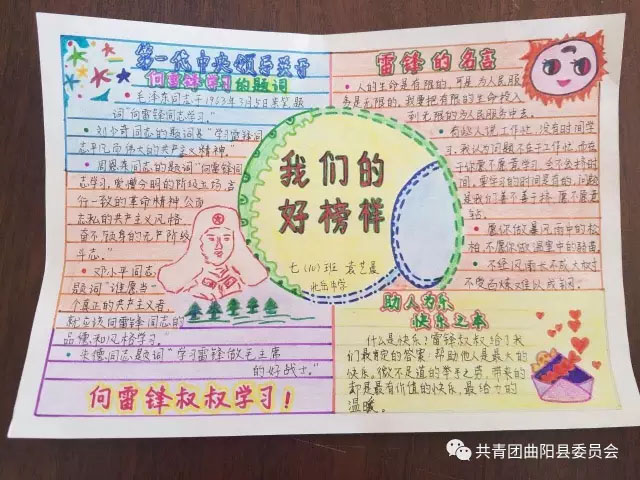 第一代中央领导关于
向雷锋学习的题词
·毛泽东同志于1963年3月5日亲笔题
词"向雷锋同志学习。"
·刘少奇同志的题词是"学习雷锋同
志平凡而伟大的共产主义精神。"
·周恩来同志的题词"向雷锋同
志学习，爱憎分明的阶级立场，言
行一致的革命精神公而
忘私的共产主义风格
奋不顾身的无产阶级
斗志。"
·邓小平同志
题词"谁愿当
个真正的共产主义者，
就应该向雷锋同志的
品德和风格学习。"
·朱德同志题词"学习雷锋做毛主席
的好战士。"
向雷锋叔叔学习！
我们的
好榜样
七（10）班 袁艺晨
北岳中学
雷锋的名言
·人的生命是有限的，可是为人民服
务是无限的，我要把有限的生命投入
到无限的为人民服务中去。
·有些人说工作忙，没有时间学
习，我认为问题不在于工作忙，而在
于你愿不愿意学习，会不会挤时
间，要学习的时间是有的，问题
是我们善不善于挤，愿不愿意
钻。
·愿你做暴风雨中的松
柏，不愿你做温室中的
·不经风雨，长不成大树
不受百炼难以成钢。
助人为乐
快乐之本
什么是快乐？雷锋叔叔给了我
们最肯定的答案：帮助他人是最大的
快乐。微不足道的举手之劳，带来的
却是最有价值的快乐，最给力的
温暖。
共青团曲阳县委员会